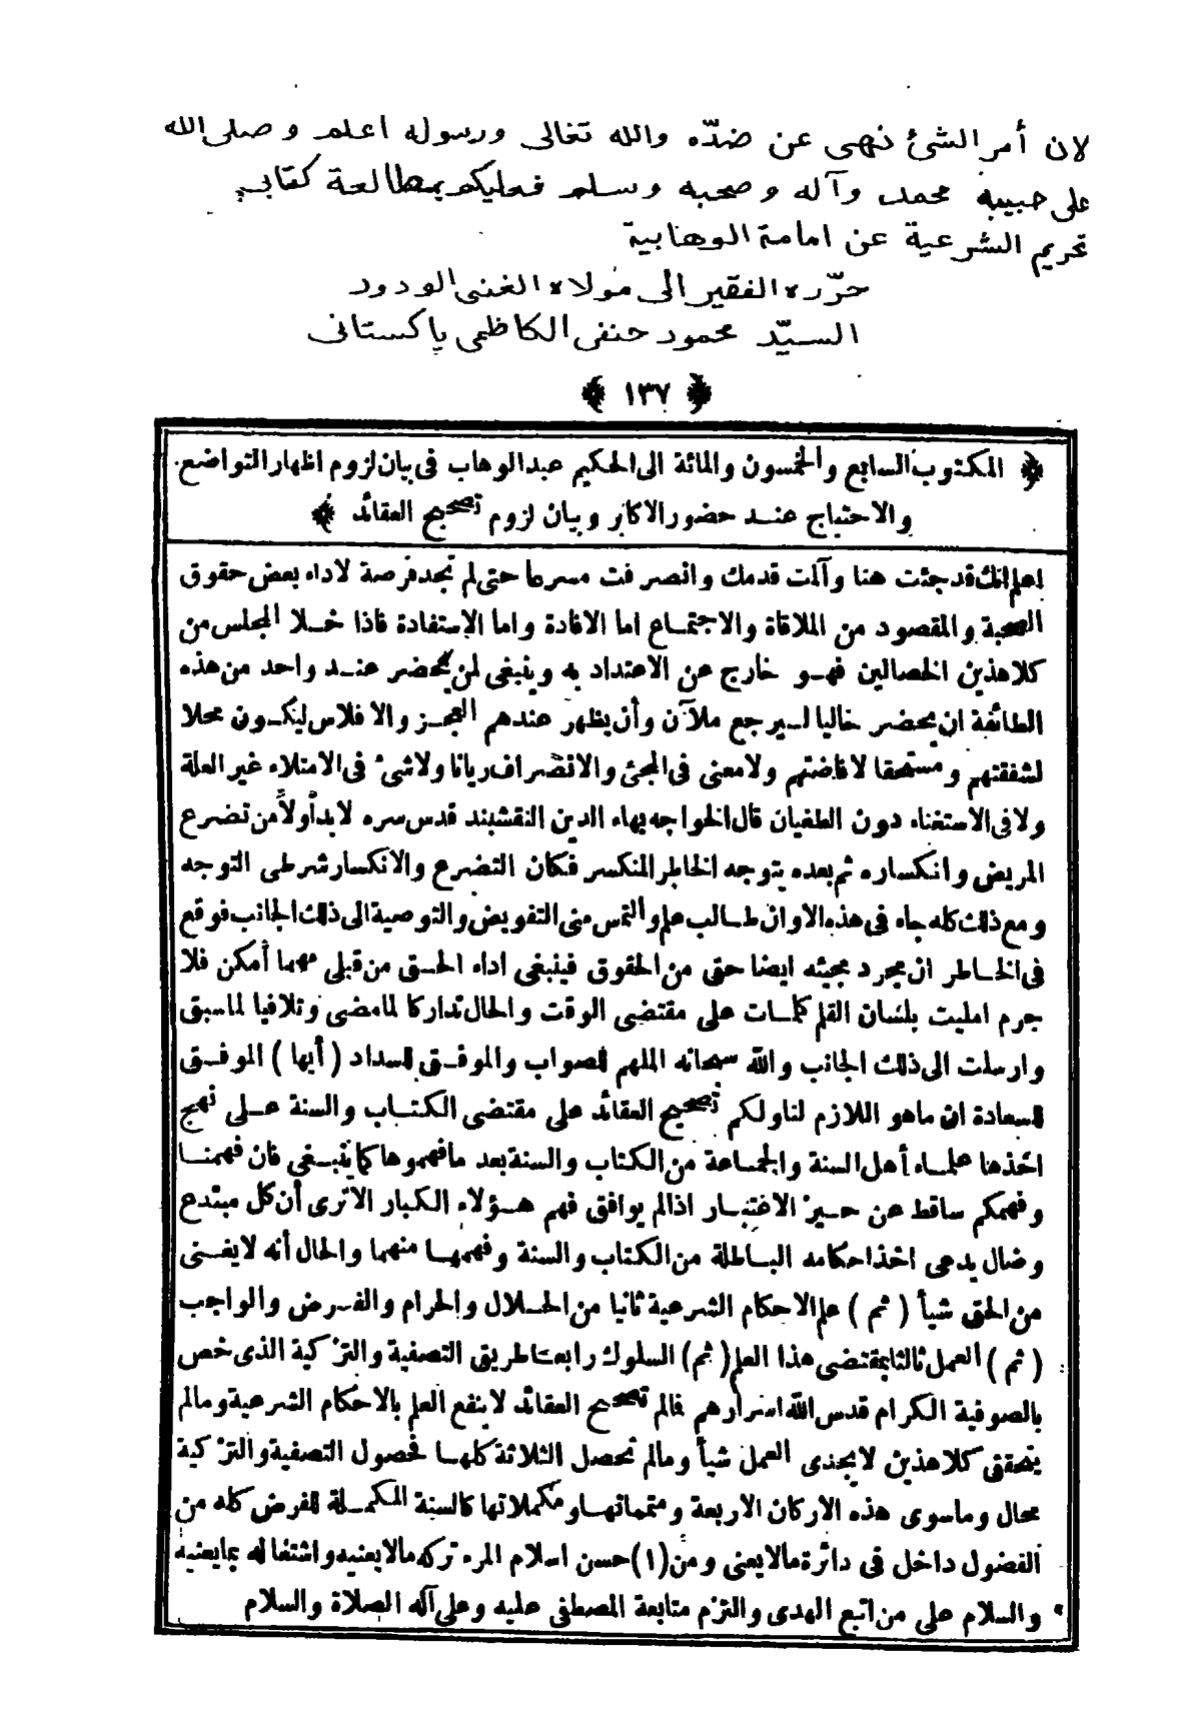 لان أمر الشئ نهى عن ضدّه والله تعالى ورسوله اعلم وصلى الله
على حبيبه محمد وآله وصحبه وسلم فعليكم بمطالعة كتابي
تحريم الشرعية عن امامة الوهابية
حرّره الفقير الى مولاه الغنى الودود
السيّد محمود حنفى الكاظمى پاكستانى
﴿ ١٣٧ ﴾
﴿ المكتوب السابع والخمسون والمائة الى الحكيم عبد الوهاب فى بيان لزوم اظهار التواضع
والاحتياج عند حضور الاكابر وبيان لزوم تصحيح العقائد ﴾
اعلم انك قد جئت هنا وآلمت قدمك وانصرفت مسرعا حتى لم تجد فرصة لاداء بعض حقوق
الصحبة والمقصود من الملاقاة والاجتماع اما الافادة واما الاستفادة فاذا خلا المجلس من
كلا هذين الخصالين فهو خارج عن الاعتداد به وينبغى لمن يحضر عند واحد من هذه
الطائفة ان يحضر خاليا ليرجع ملآن وأن يظهر عندهم العجز والافلاس ليكون محلا
لشفقتهم ومستحقا لافاضتهم ولا معنى فى المجئ والانصراف ريانا ولا شئ فى الامتلاء غير العلة
ولا فى الاستغناء دون الطغيان قال الخواجه بهاء الدين النقشبند قدس سره لابد أولا من تضرع
المريض وانكساره ثم بعده يتوجه الخاطر المنكسر فكان التضرع والانكسار شرطى التوجه
ومع ذلك كله جاء فى هذه الاوان طالب علم والتمس منى التفويض والتوصية الى ذلك الجانب فوقع
فى الخاطر ان مجرد مجيئه ايضا حق من الحقوق فينبغى اداء الحق من قبلى مهما أمكن فلا
جرم امليت بلسان القلم كلمات على مقتضى الوقت والحال تداركا لما مضى وتلافيا لما سبق
وارسلت الى ذلك الجانب والله سبحانه الملهم للصواب والموفق للسداد ( أيها ) الموفق
للسعادة ان ماهو اللازم لنا ولكم تصحيح العقائد على مقتضى الكتاب والسنة على نهج
اخذها علماء أهل السنة والجماعة من الكتاب والسنة بعد ما فهموها كما ينبغى فان فهمنا
وفهمكم ساقط عن حيز الاعتبار اذا لم يوافق فهم هؤلاء الكبار الا ترى أن كل مبتدع
وضال يدعى اخذ احكامه الباطلة من الكتاب والسنة وفهمها منهما والحال أنه لا يغنى
من الحق شيأ ( ثم ) علم الاحكام الشرعية ثانيا من الحلال والحرام والفرض والواجب
( ثم ) العمل ثالثا بمقتضى هذا العلم ( ثم ) السلوك رابعا طريق التصفية والتزكية الذى خص
بالصوفية الكرام قدس الله اسرارهم فما لم تصحح العقائد لا ينفع العلم بالاحكام الشرعية وما لم
يتحقق كلا هذين لا يجدى العمل شيأ وما لم تحصل الثلاثة كلها فحصول التصفية والتزكية
محال وما سوى هذه الاركان الاربعة ومتمماتها ومكملاتها كالسنة المكملة للفرض كله من
الفضول داخل فى دائرة مالا يعنى ومن (١) حسن اسلام المرء تركه مالا يعنيه واشتغاله بما يعنيه
والسلام على من اتبع الهدى والتزم متابعة المصطفى عليه وعلى آله الصلاة والسلام